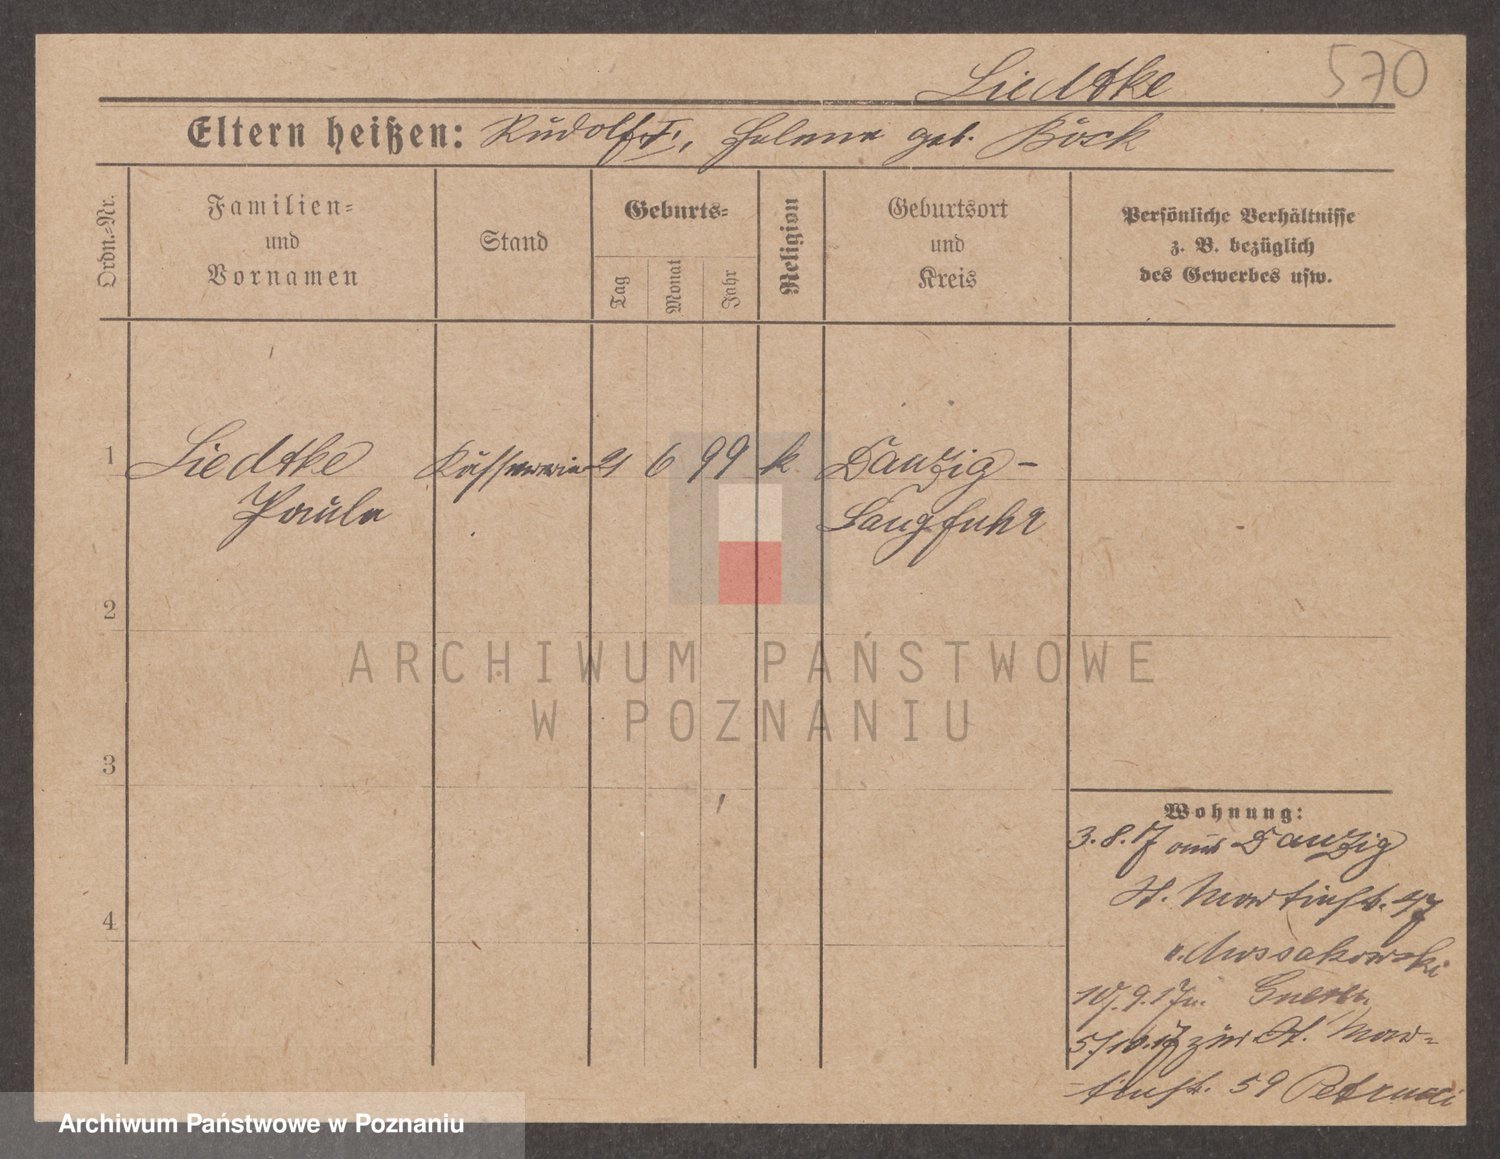 Liedtke 570
Eltern heißen: Rudolf L., Helene geb. Böck
Ordn.-Nr.
Familien-
und
Vornamen
Stand
Geburts-
Tag
Monat
Jahr
Religion
Geburtsort
und
Kreis
Persönliche Verhältnisse
z. B. bezüglich
des Gewerbes usw.
1 Liedtke 6 99 k Danzig -
Paula Langfuhr
2
ARCHIWUM PAŃSTWOWE
W POZNANIU
3
Wohnung:
3.8.17 aus Danzig
St. Martinst. 47
4
10/9.17 n. Gnesen
5/10.17 zur St. Mar-
tinst. 59
Archiwum Państwowe w Poznaniu